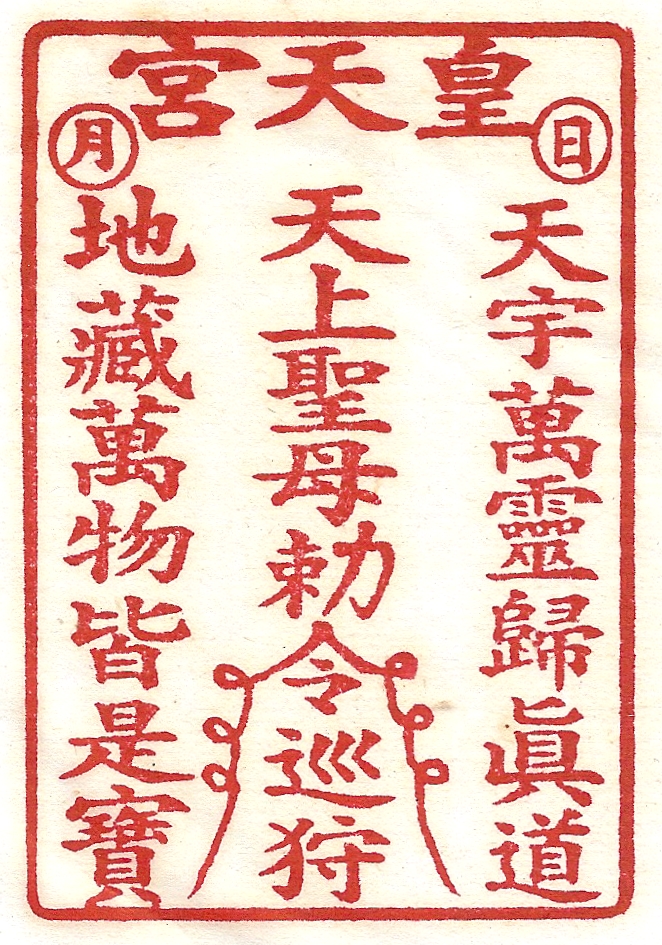 皇天宮
日
月
天宇萬靈歸眞道
天上聖母勅令巡狩
地藏萬物皆是寶